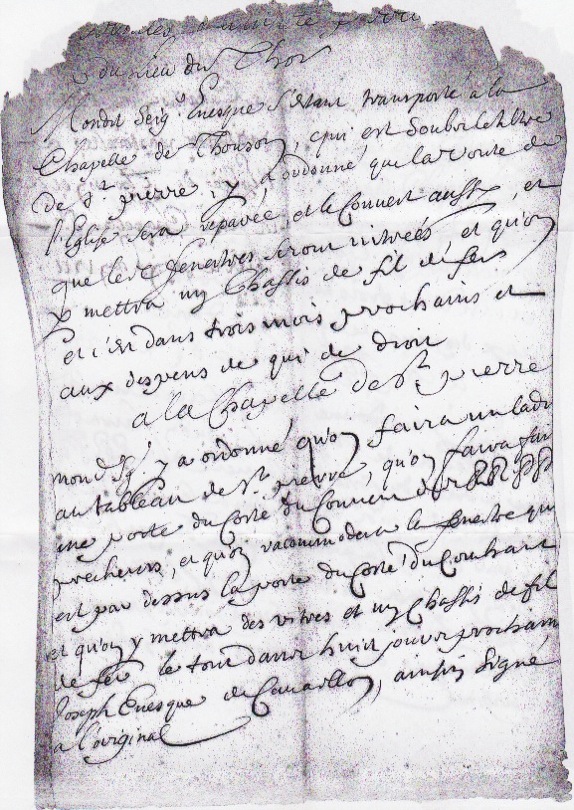 du Lieu du Thor
Mondit Seigr Evesque s'estant transporté à la
Chapelle de Thouson, qui est soubs le tiltre
de St pierre, y a ordonné que la voute de
l'Eglise sera reparée et le Couvert aussy, et
que les fenestres seront vitrées et qu'on
y mettra un Chassis de fil de fer
et c'est dans trois mois prochains et
aux despens de qui de droit
a la Chapelle de St pierre
mond Sgr y a ordonné qu'on faira un Cadr
au tableau de St pierre, qu'on faira fair
une porte du costé du Couvent des
precheurs, et qu'on racommodera la fenestre qui
est par dessus la porte du costé du Couchant
et qu'on y mettra des vitres et un Chassis de fil
de fer le tout dans huit jours prochains
Joseph Evesque de Cavaillon, ainsin signé
a l'original